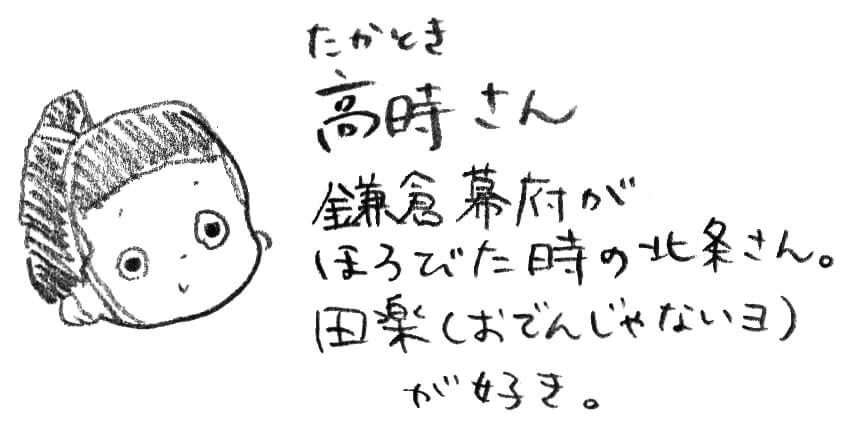 たかとき
高時さん
鎌倉幕府が
ほろびた時の北条さん。
田楽(おでんじゃないヨ)
が好き。